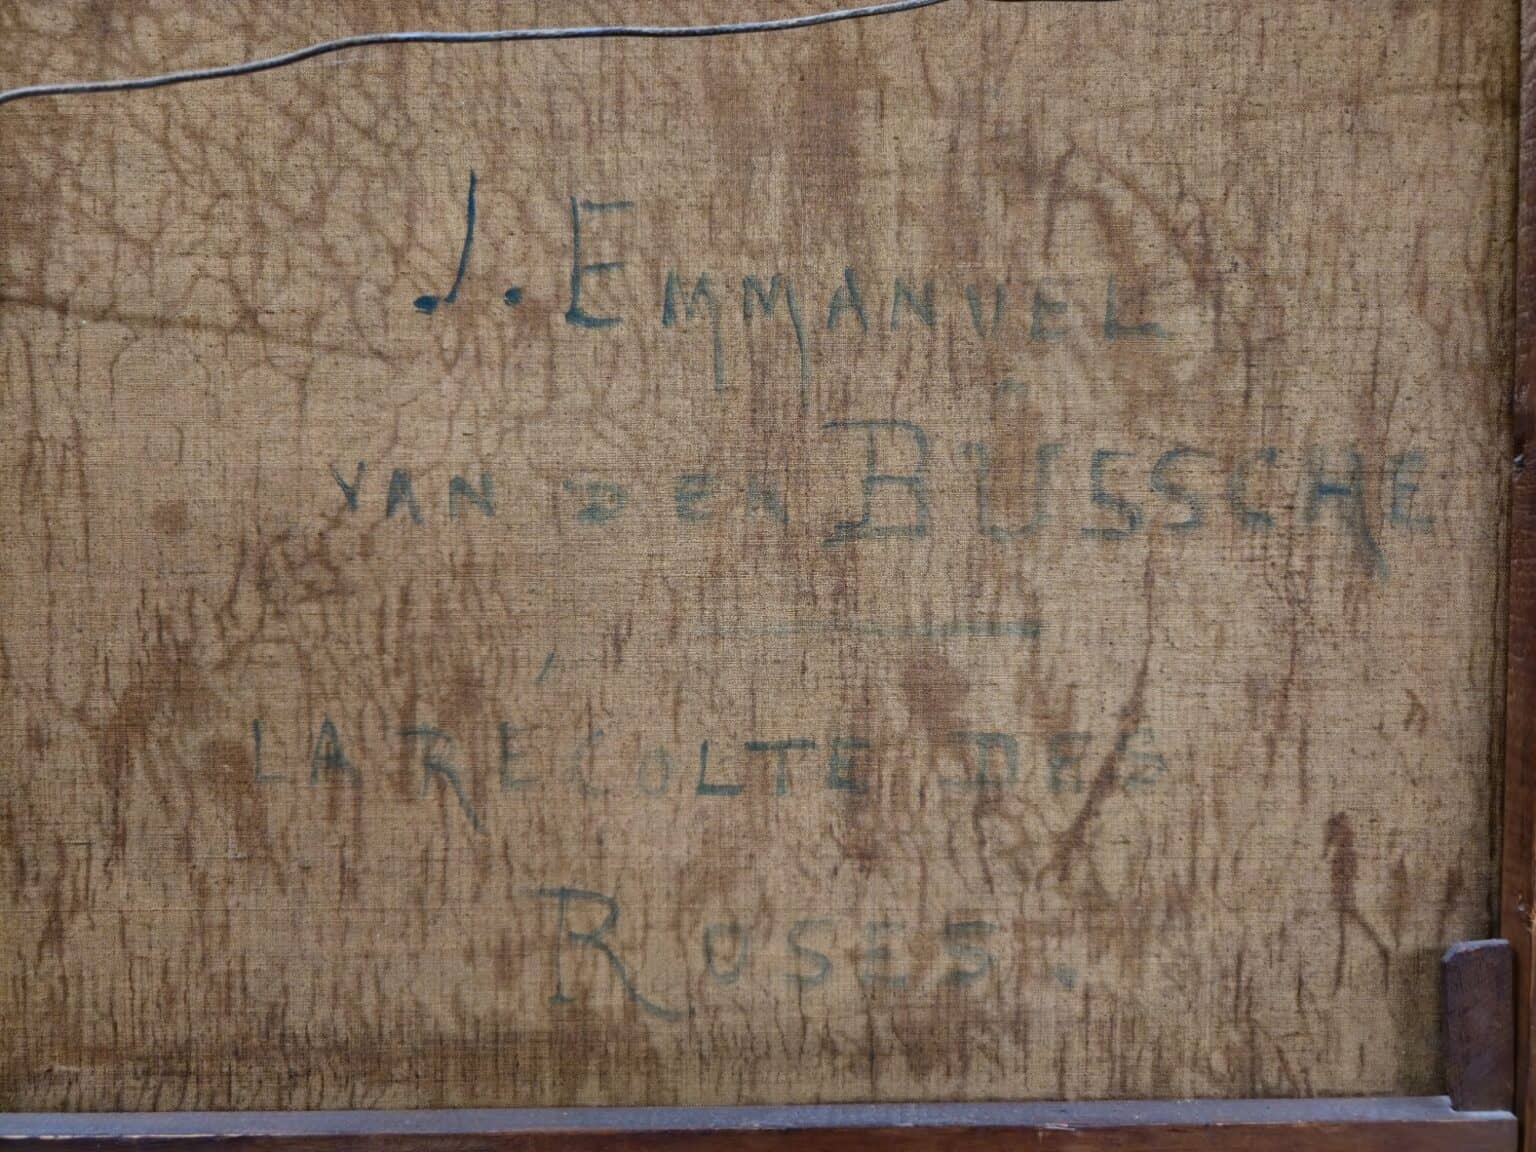 J. EMMANUEL
VAN DEN BUSSCHE
LA RÉCOLTE DES
ROSES.